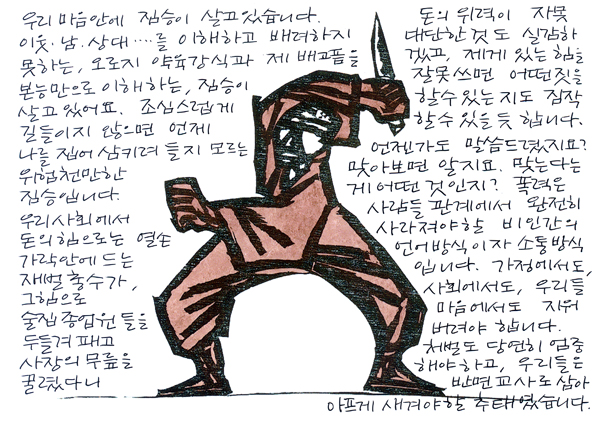 우리 마음안에 짐승이 살고있습니다.
이웃·남·상대····를 이해하고 배려하지
못하는, 오로지 약육강식과 제 배고픔을
본능만으로 이해하는, 짐승이
살고 있어요. 조심스럽게
길들이지 않으면 언제
나를 집어 삼키려 들지 모르는
위험천만한
짐승입니다.
우리사회에서
돈의 힘으로는 열손
가락안에 드는
재벌 총수가,
그힘으로
술집 종업원 들을
두들겨 패고
사장의 무릎을
꿇렸다니
돈의 위력이 자못
대단한 것도 실감하
겠고, 제게 있는 힘을
잘못 쓰면 어떤짓을
할수 있는 지도 짐작
할수 있을 듯 합니다.
언젠가도 말씀드렸지요?
맞아보면 알지요. 맞는다는
게 어떤 것인지? 폭력은
사람들 관계에서 완전히
사라져야할 비인간의
언어방식이자 소통방식
입니다. 가정에서도,
사회에서도, 우리들
마음에서도 지워
버려야 합니다.
처벌도 당연히 엄중
해야하고, 우리들은
반면교사로 삼아
아프게 새겨야할 추태였습니다.